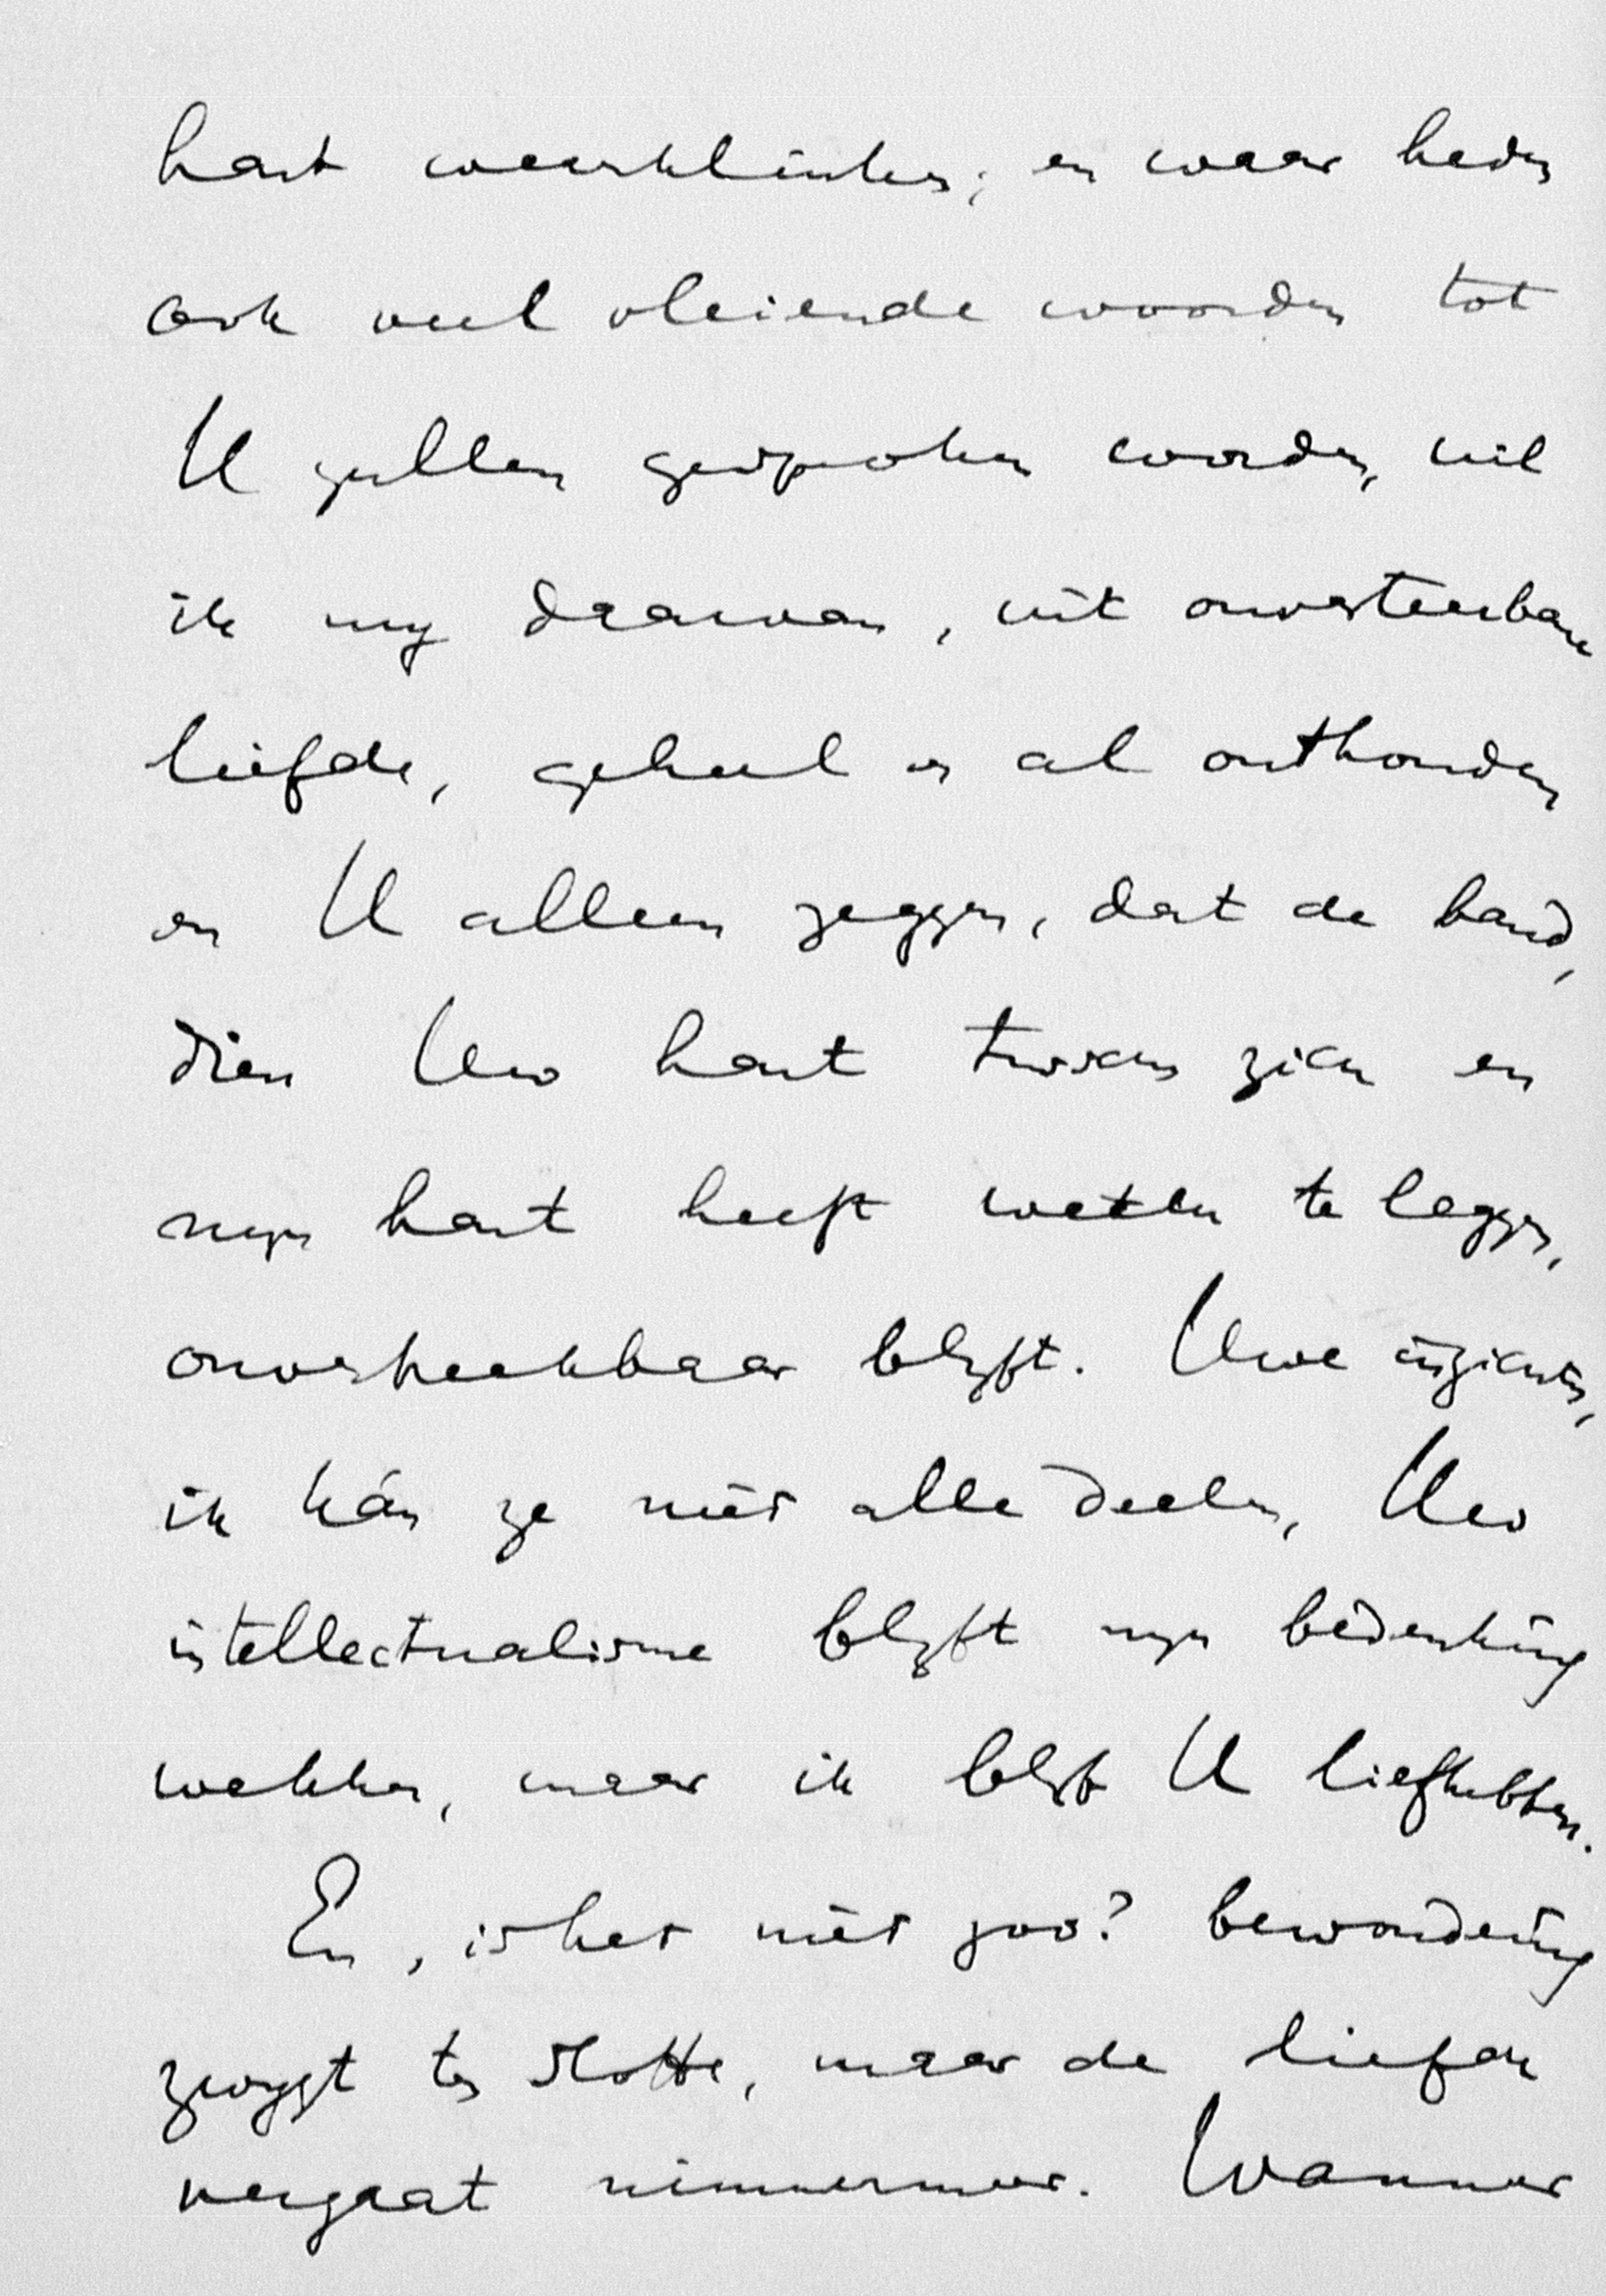 hart weerklinken; en waar heden
ook veel vleiende woorden tot
U zullen gesproken worden, wil
ik mij daarvan, uit
liefde, geheel en al onthouden
en U alleen zeggen, dat de band,
dien Uw hart tusschen zich en
mijn hart heeft weten te leggen,
onverbreekbaar blijft. Uwe inzichten,
ik kán ze niet alle deelen, Uw
intellectualisme blijft mijn bedenking
wekken, maar ik blijf U liefhebben.
En, is het niet zoo? bewondering
zwijgt ten slotte, maar de liefde
vergaat nimmermeer. Wanneer